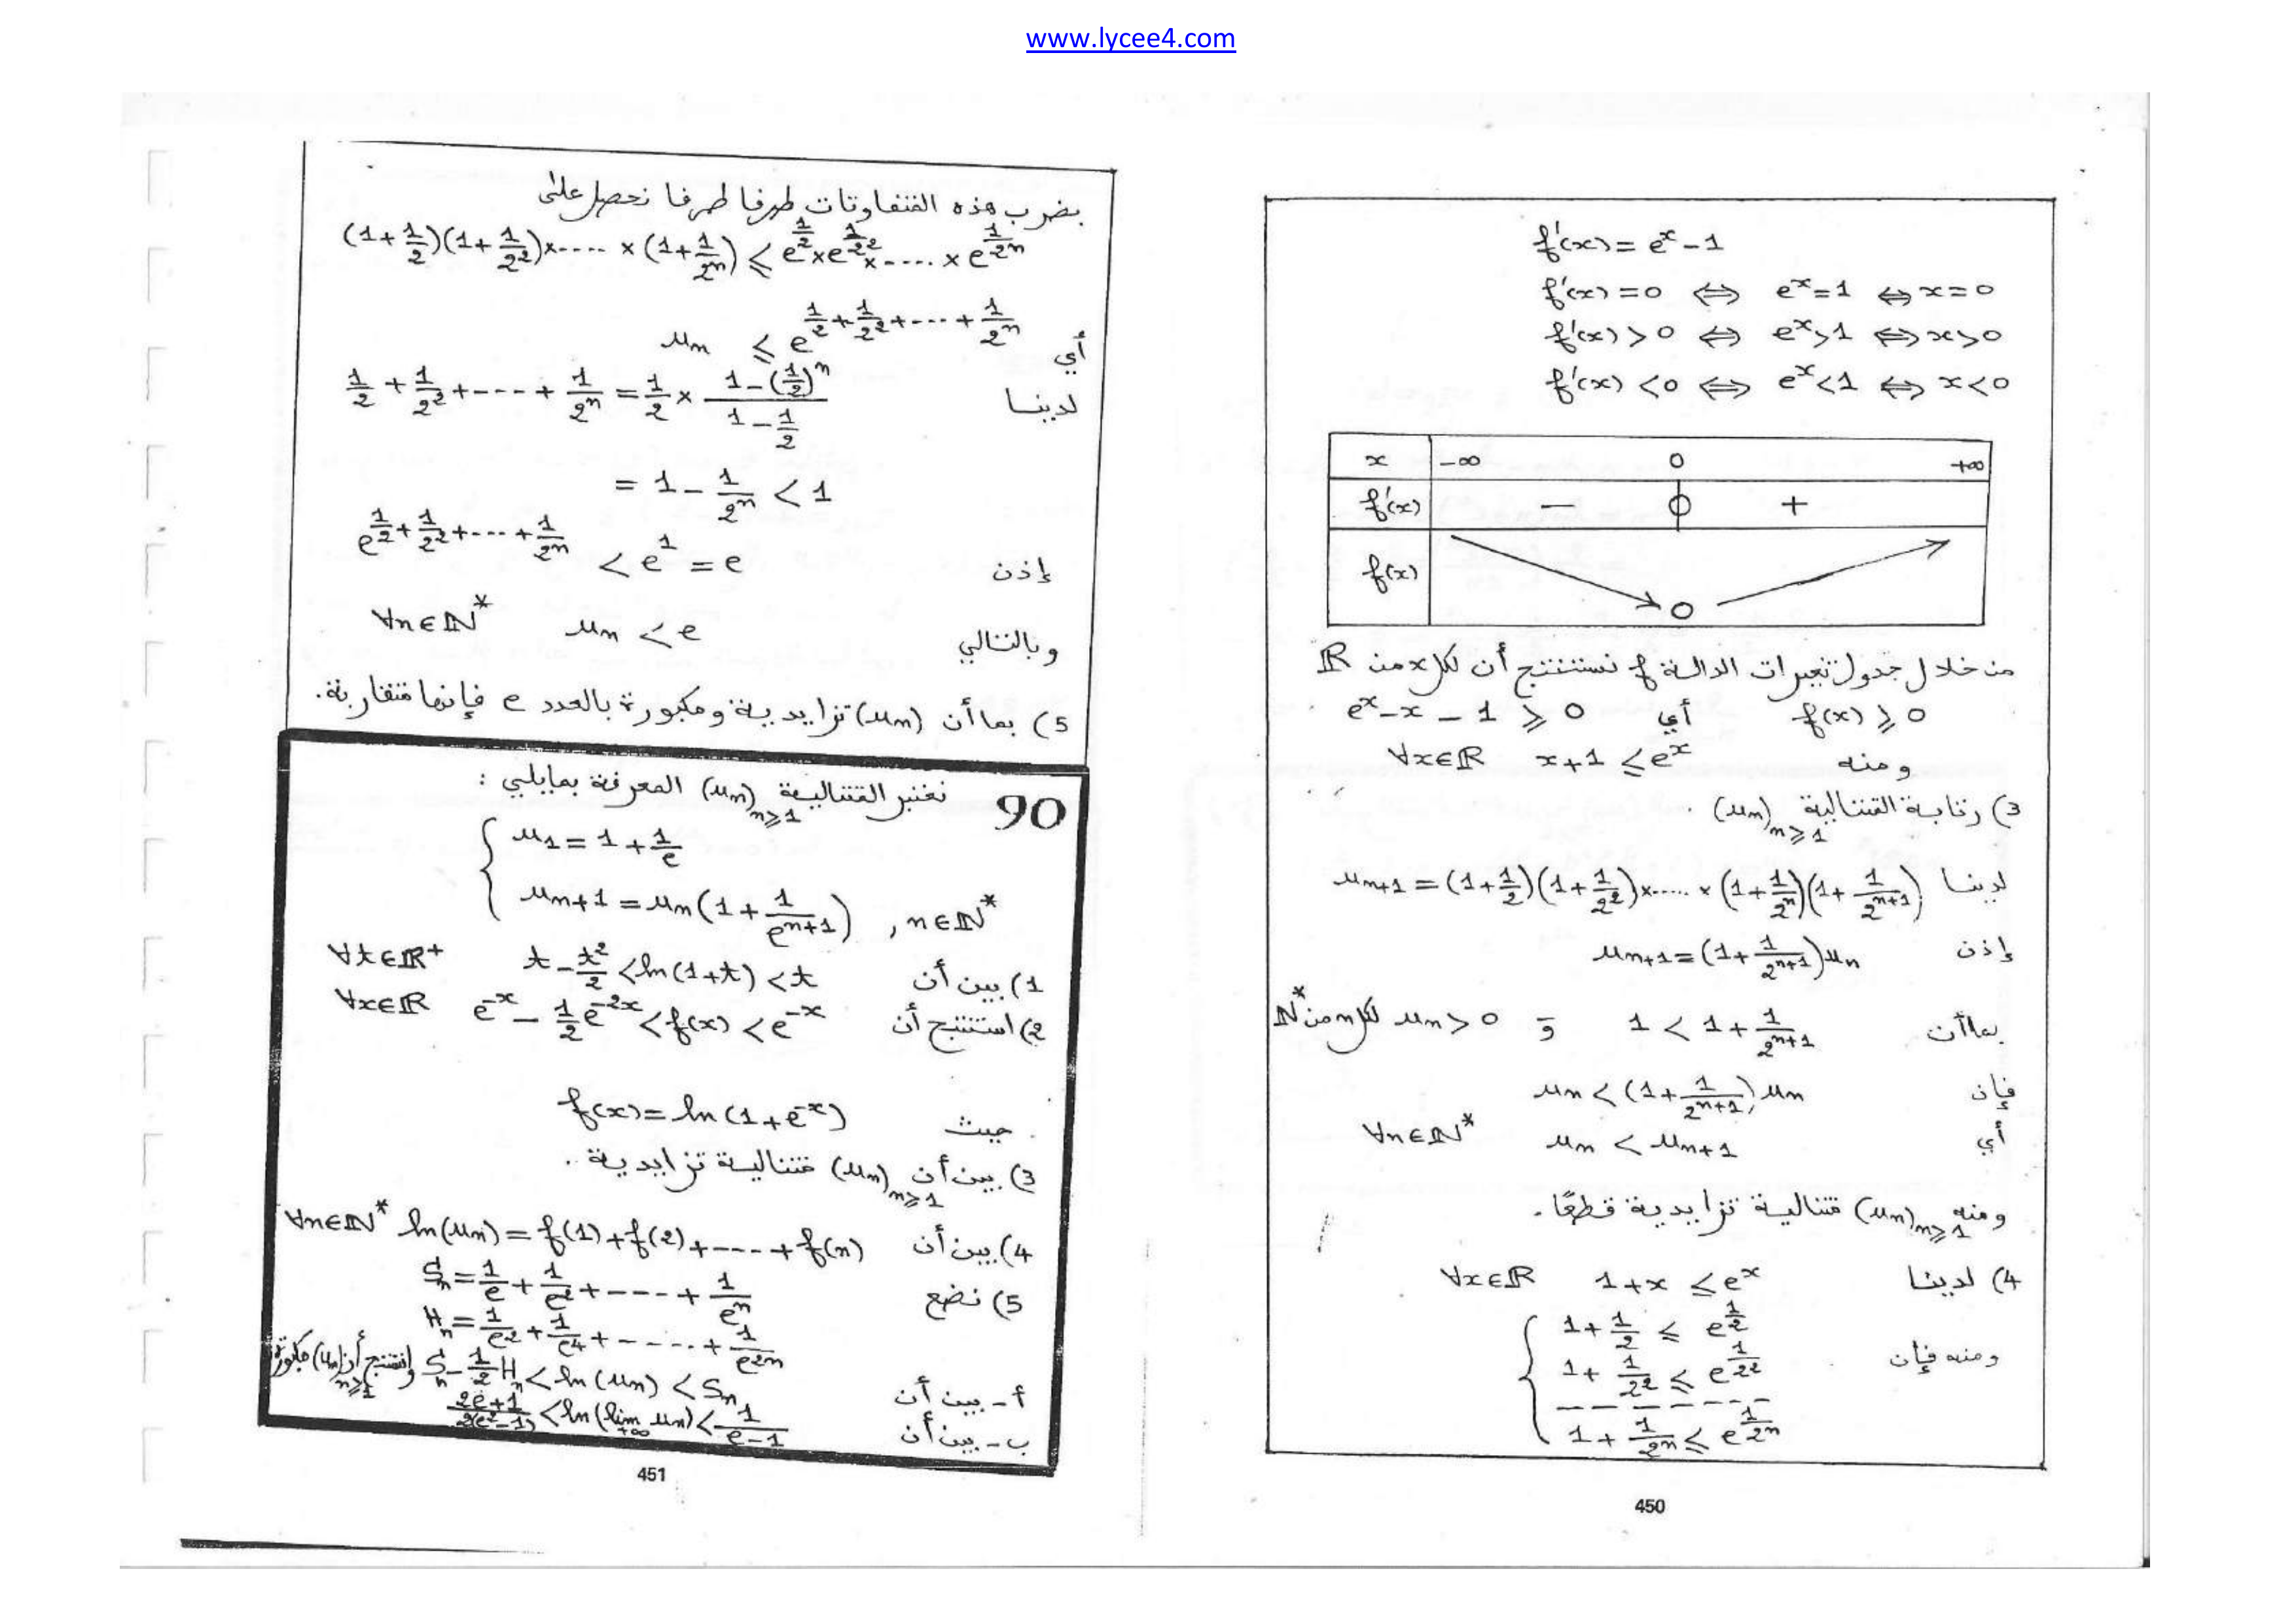 www.lycee4.com
f'(x) = e^x - 1
f'(x) = 0 ⇔ e^x = 1 ⇔ x = 0
f'(x) > 0 ⇔ e^x > 1 ⇔ x > 0
f'(x) < 0 ⇔ e^x < 1 ⇔ x < 0
x -∞ 0 +∞
f'(x) - 0 +
f(x) 0
من خلال جدول تغيرات الدالة f نستنتج أن لكل x من ℝ
f(x) ⩾ 0 أي e^x - x - 1 ⩾ 0
ومنه x+1 ⩽ e^x ∀x∈ℝ
3) رتابة المتتالية (u_n)_{n⩾1} .
لدينا u_{n+1} = (1+1/2)(1+1/2^2)×.....×(1+1/2^n)(1+1/2^{n+1})
إذن u_{n+1} = (1+1/2^{n+1})u_n
بما أن 1 < 1+1/2^{n+1} و u_n > 0 لكل n من ℕ*
فإن u_n < (1+1/2^{n+1})u_n
أي u_n < u_{n+1} ∀n∈ℕ*
ومنه (u_n)_{n⩾1} متتالية تزايدية قطعًا.
4) لدينا 1+x ⩽ e^x ∀x∈ℝ
ومنه فإن { 1+1/2 ⩽ e^{1/2}
1+1/2^2 ⩽ e^{1/2^2}
- - - - - - -
1+1/2^n ⩽ e^{1/2^n}
450
بضرب هذه المتفاوتات طرفا طرفا نحصل على
(1+1/2)(1+1/2^2)×.....×(1+1/2^n) ⩽ e^{1/2}×e^{1/2^2}×.....×e^{1/2^n}
أي u_n ⩽ e^{1/2+1/2^2+...+1/2^n}
لدينا 1/2+1/2^2+----+1/2^n = 1/2 × (1-(1/2)^n)/(1-1/2)
= 1 - 1/2^n < 1
إذن e^{1/2+1/2^2+...+1/2^n} < e^1 = e
وبالتالي u_n < e ∀n∈ℕ*
5) بما أن (u_n) تزايدية ومكبورة بالعدد e فإنها متقاربة.
90 نعتبر المتتالية (u_n)_{n⩾1} المعرفة بمايلي :
{ u_1 = 1+1/e
u_{n+1} = u_n(1+1/e^{n+1}) , n∈ℕ*
1) بين أن t - t^2/2 < ln(1+t) < t ∀t∈ℝ+
2) استنتج أن e^{-x} - 1/2 e^{-2x} < f(x) < e^{-x} ∀x∈ℝ
حيث f(x) = ln(1+e^{-x})
3) بين أن (u_n)_{n⩾1} متتالية تزايدية .
4) بين أن ln(u_n) = f(1)+f(2)+----+f(n) ∀n∈ℕ*
5) نضع S_n = 1/e+1/e^2+----+1/e^n
H_n = 1/e^2+1/e^4+-----+1/e^{2n}
أ - بين أن S_n - 1/2 H_n < ln(u_n) < S_n واستنتج أن (u_n)_{n⩾1} مكبورة
ب - بين أن (2e+1)/(2(e^2-1)) < ln(lim_{+∞} u_n) < 1/(e-1)
451